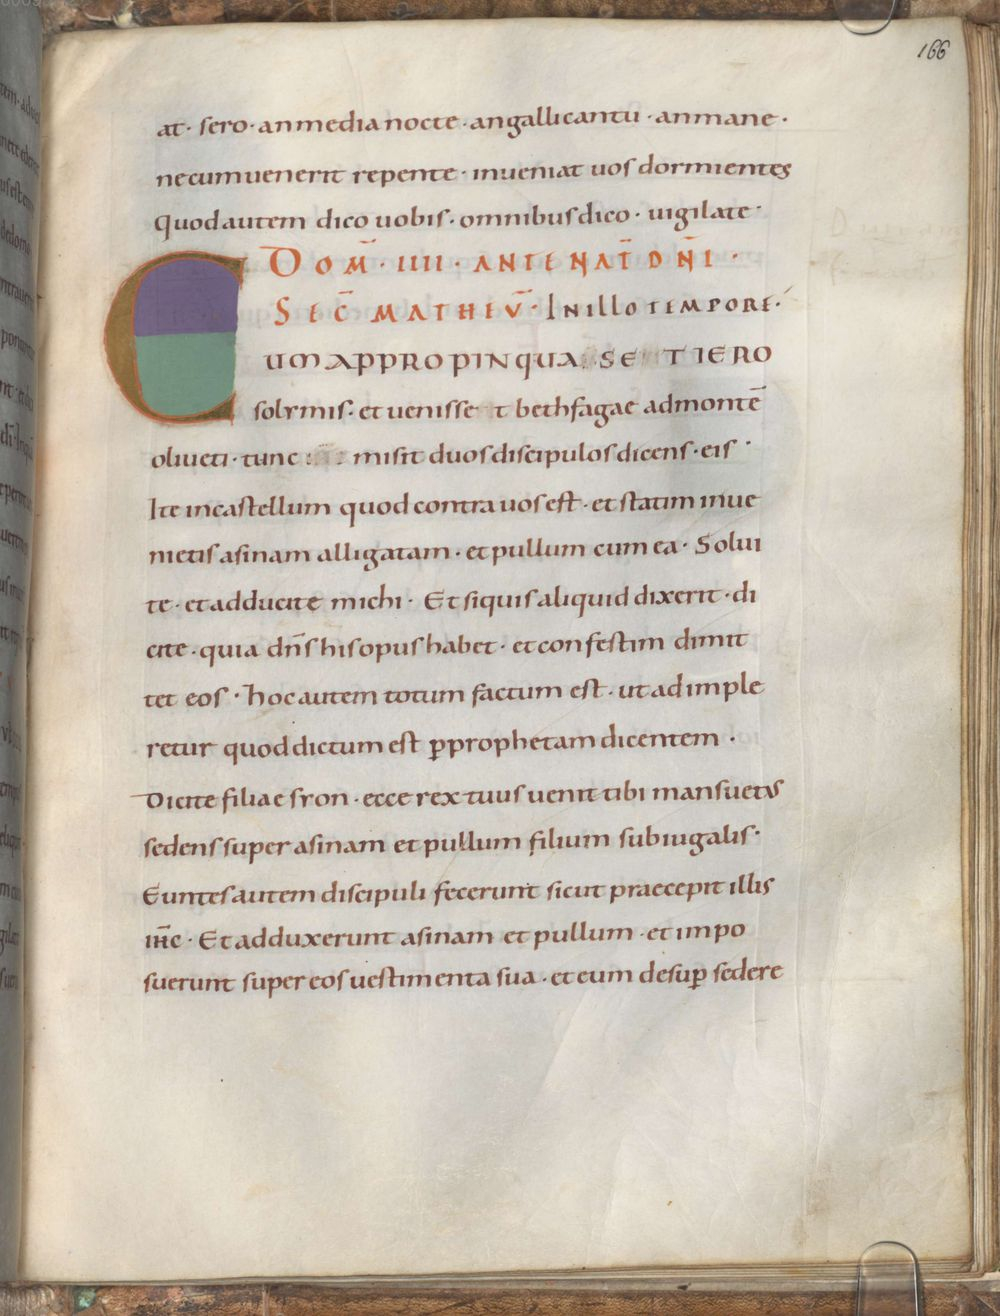 166
at · sero · an media nocte · an gallicantu · an mane ·
ne cum uenerit repente · inueniat uos dormientes
Quod autem dico uobis · omnibus dico · uigilate ·
DOM̄ · IIII · ANTE NAT̄ DN̄I ·
SEC̄ MATHEV̄ · IN ILLO TEMPORE ·
CUM APPROPINQUA SE T IERO
solymis · et uenisse t bethfagae ad montē
oliueti · tunc misit duos discipulos dicens · eis ·
Ite in castellum quod contra uos est · et statim inue
nietis asinam alligatam · et pullum cum ea · Solui
te · et adducite michi · Et siquis aliquid dixerit · di
cite · quia dn̄s his opus habet · et confestim dimit
tet eos · hoc autem totum factum est · ut adimple
retur quod dictum est ꝑ prophetam dicentem ·
Dicite filiae syon · ecce rex tuus uenit tibi mansuetus
sedens super asinam et pullum filium subiugalis ·
Euntes autem discipuli fecerunt sicut praecepit illis
ih̄c · Et adduxerunt asinam et pullum · et impo
suerunt super eos uestimenta sua · et eum desuꝑ sedere